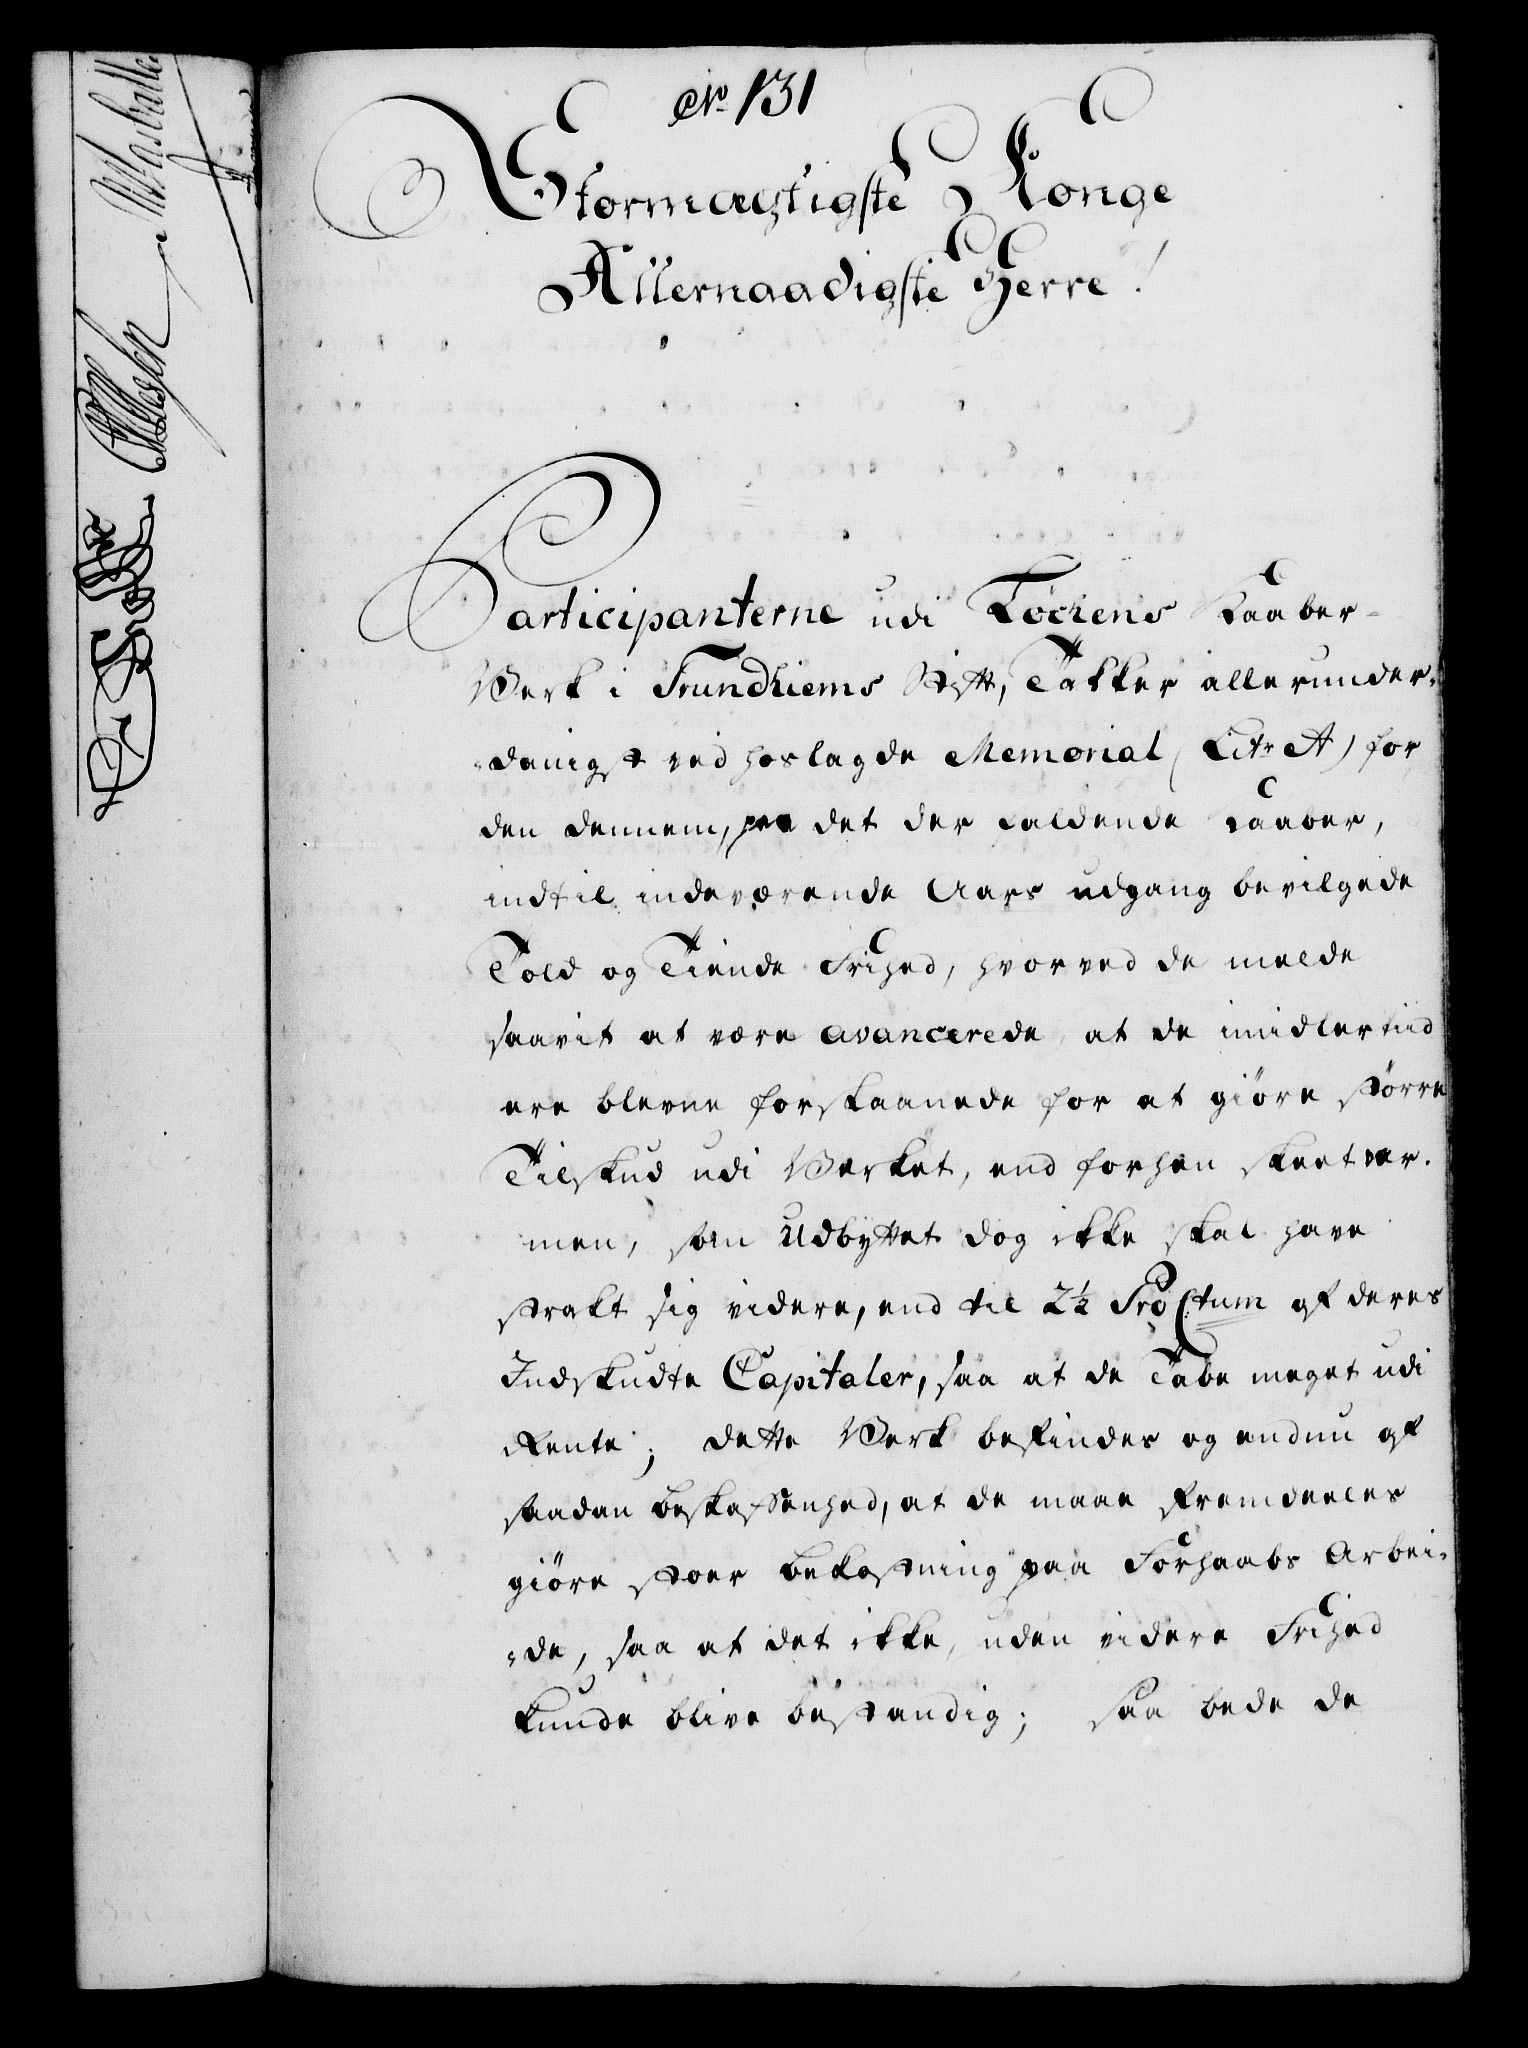 No 131
Stormægtigste Konge
Allernaadigste Herre!
Participanterne udi Löckens Kaaber-
Werk i Trundhiems Stift, Takker allerunder-
-danigst ved hoslagde Memorial (Litr A) for
den dennem, paa det der faldende Kaaber,
indtil indeværende Aars udgang bevilgede
Told og Tiende Frihed, hvorved de melde
saavit at være avancerede, at de imidlertiid
ere blevne forskaanede for at giöre större
Tilskud udi Werket, end forhen skeet var.
men, som Udbyttet dog ikke skal have
strakt sig videre, end til 2½ Pro Ctum af deres
Indskudte Capitaler, saa at de Tabe meget udi
Rente; dette Werk befindes og endnu af
saadan beskaffenhed, at de maae fremdeeles
giöre stoer bekostning paa Forhaabs Arbei-
-de, saa at det ikke, uden videre Frihed
kunde blive bestandig; Saa bede de